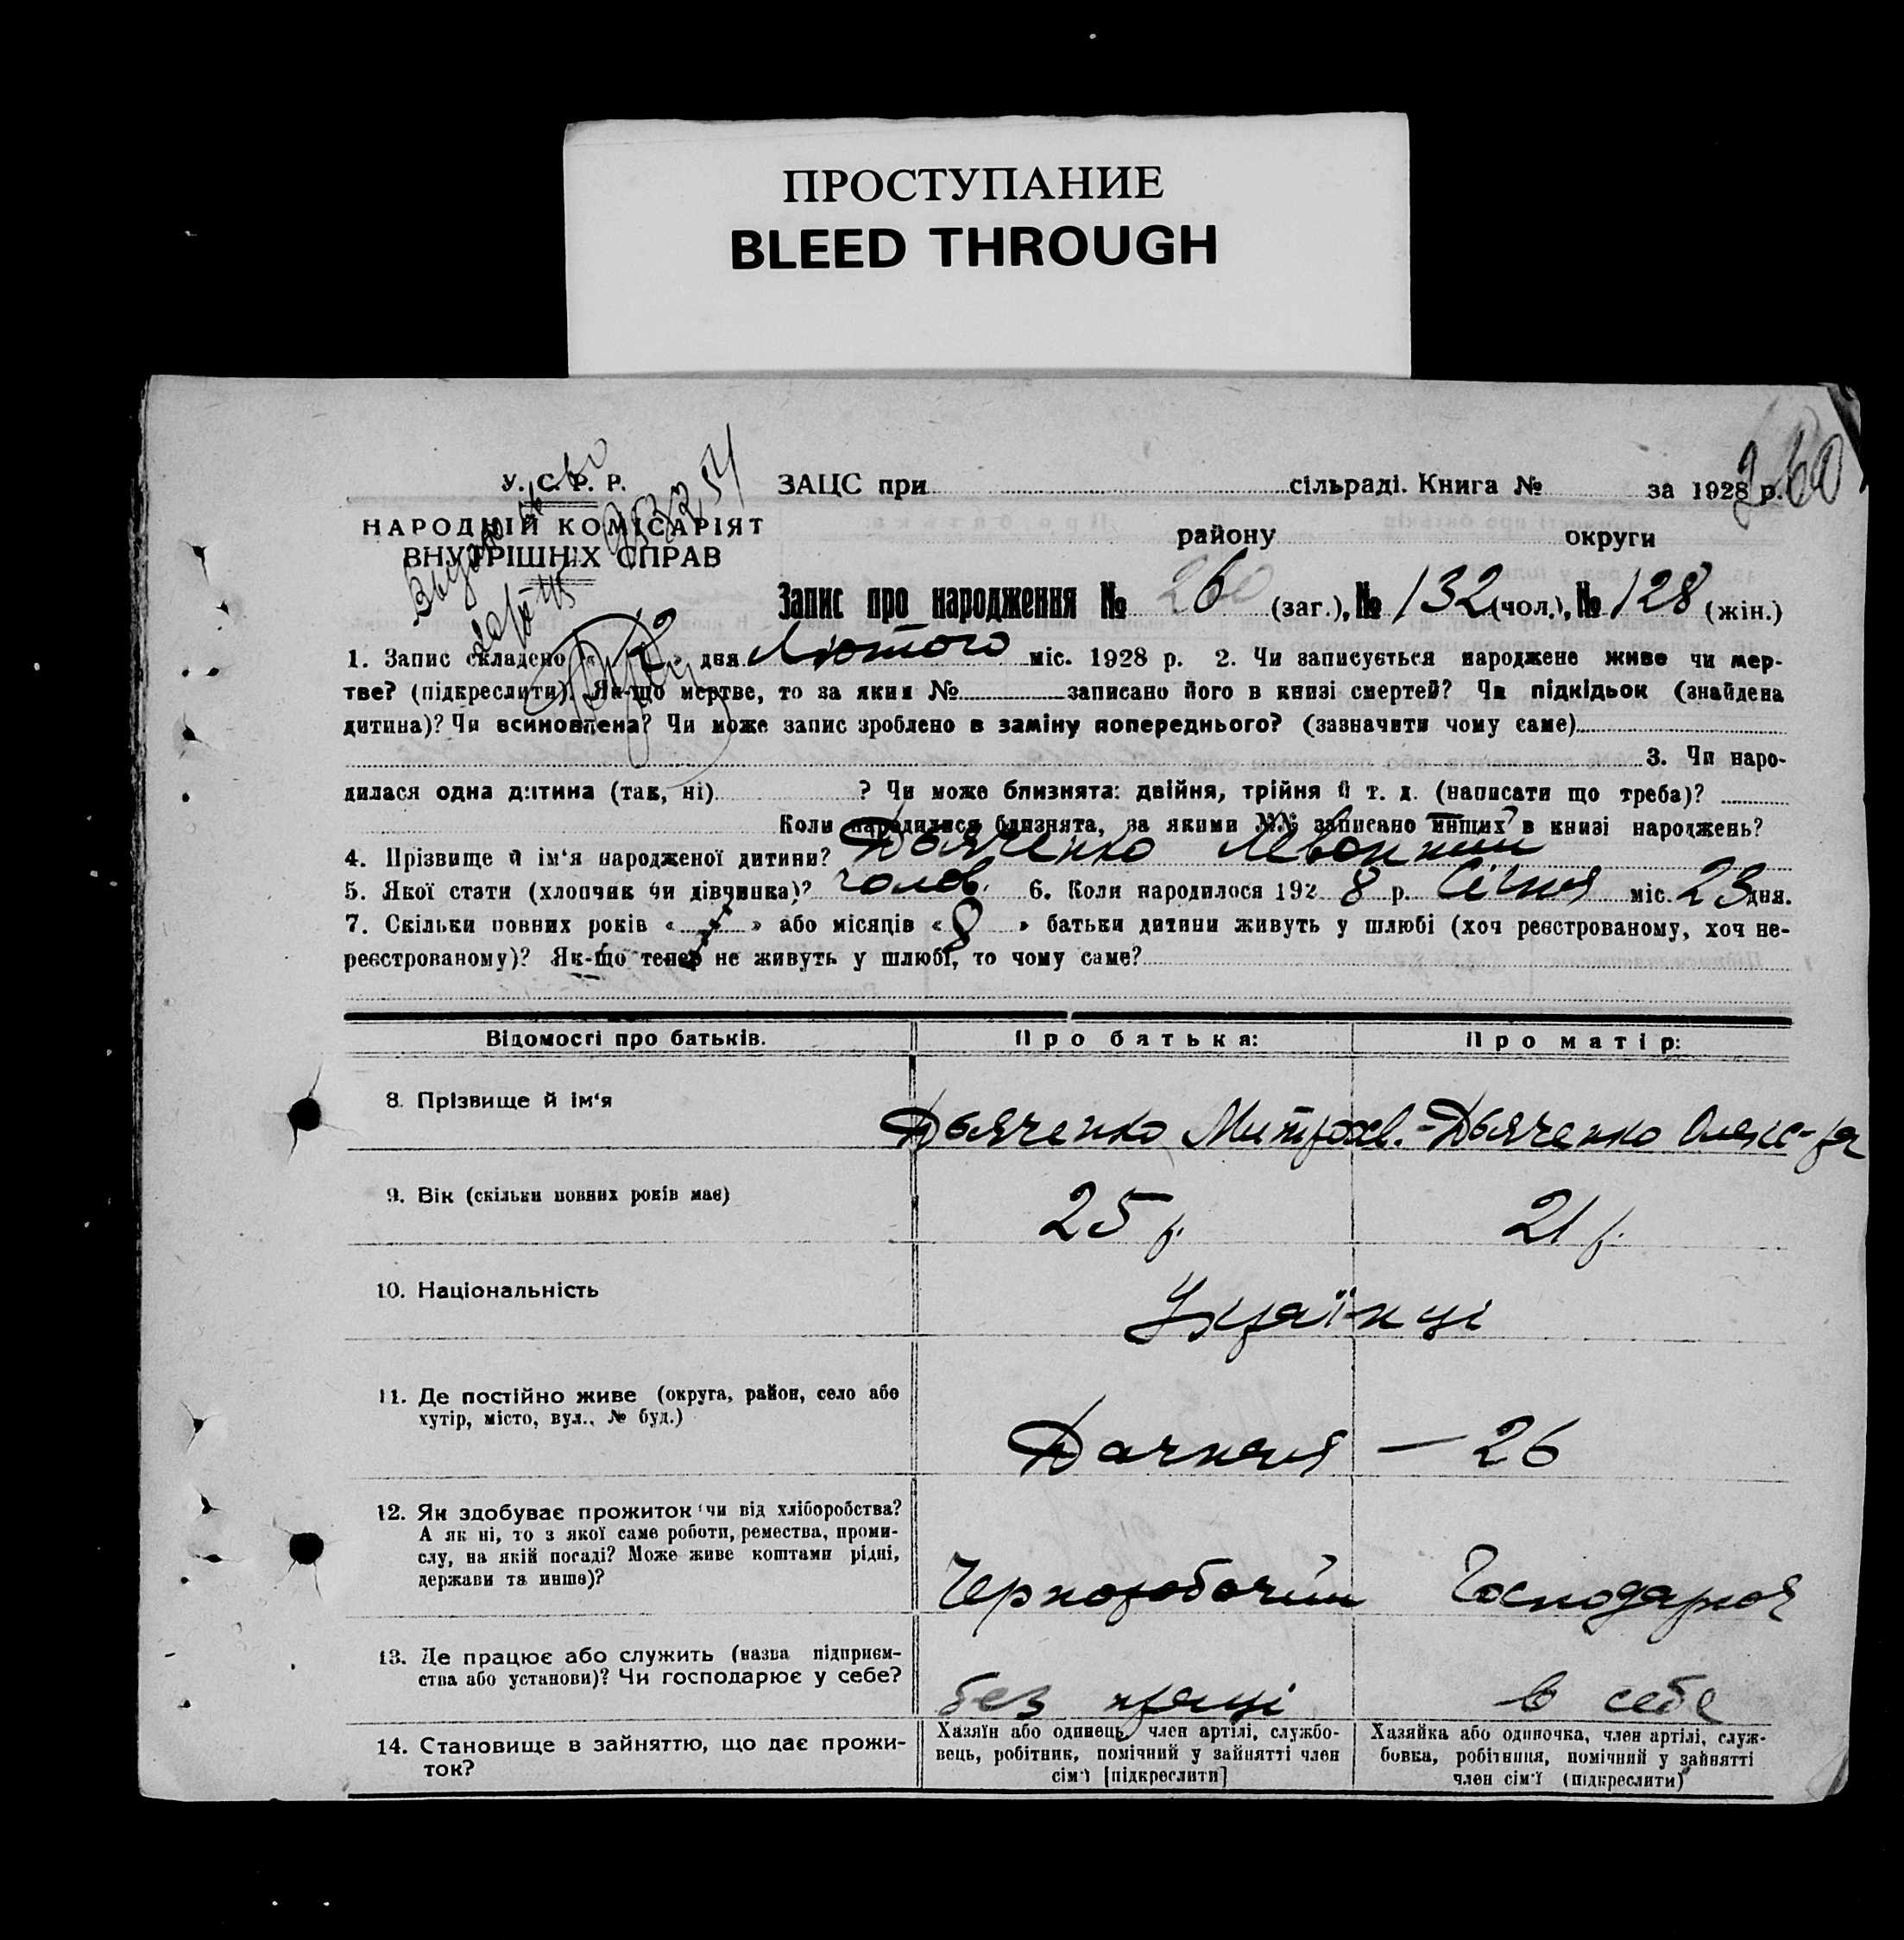 ПРОСТУПАНИЕ
BLEED THROUGH
260
У. С. Р. Р.
НАРОДНІЙ КОМІСАРІЯТ
ВНУТРІШНІХ СПРАВ
ЗАЦС при сільраді. Книга № за 1928 р.
району округи
Запис про народження № 260 (заг.), № 132 (чол.), № 128 (жін.)
1. Запис складено « 2 » дня Лютого міс. 1928 р. 2. Чи записується народжене живе чи мер-
тве? (підкреслити). Як-що мертве, то за яким № записано його в книзі смертей? Чи підкідьок (знайдена
дитина)? Чи всиновлена? Чи може запис зроблено в заміну попереднього? (зазначити чому саме)
3. Чи наро-
дилася одна дитина (так, ні) ? Чи може близнята: двійня, трійня й т. д. (написати що треба)?
Коли народилися близнята, за якими №№ записано инших в книзі народжень?
4. Прізвище й ім'я народженої дитини? Дьяченко
5. Якої стати (хлопчик чи дівчинка)? чолов. 6. Коли народилося 1928 р. Січня міс. 23 дня.
7. Скільки повних років « » або місяців « 8 » батьки дитини живуть у шлюбі (хоч реєстрованому, хоч не-
реєстрованому)? Як-що тепер не живуть у шлюбі, то чому саме?
Відомості про батьків. Про батька: Про матір:
8. Прізвище й ім'я Дьяченко Митроф. Дьяченко Олекс-ра
9. Вік (скільки повних років має) 25 р. 21 р.
10. Національність Українці
11. Де постійно живе (округа, район, село або
хутір, місто, вул., № буд.) Дачная — 26
12. Як здобуває прожиток чи від хліборобства?
А як ні, то з якої саме роботи, ремества, проми-
слу, на якій посаді? Може живе коштами рідні,
держави та инше)? Черноробочий Господарює
13. Де працює або служить (назва підприєм-
ства або установи)? Чи господарює у себе? без праці в себе
14. Становище в зайняттю, що дає прожи-
ток?
Хазяїн або одинець, член артілі, службо-
вець, робітник, помічний у зайнятті член
сім'ї [підкреслити]
Хазяйка або одиночка, член артілі, служ-
бовка, робітниця, помічний у зайнятті
член сім'ї (підкреслити)